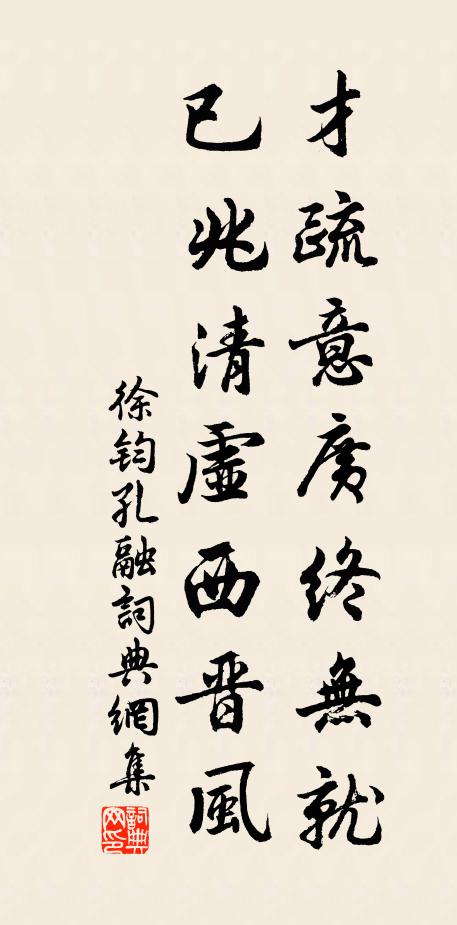 才疏意廣終無就
已兆清虛西晉風
徐鈞孔融詞典網集
詞典
网印